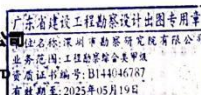 广东省建设工程勘察设计出图专用章
单位名称:深圳市勘察研究院有限公
业务范围:工程勘察综合类甲级
资质证书编号:B144046787
有效期至:2025年05月19日
司